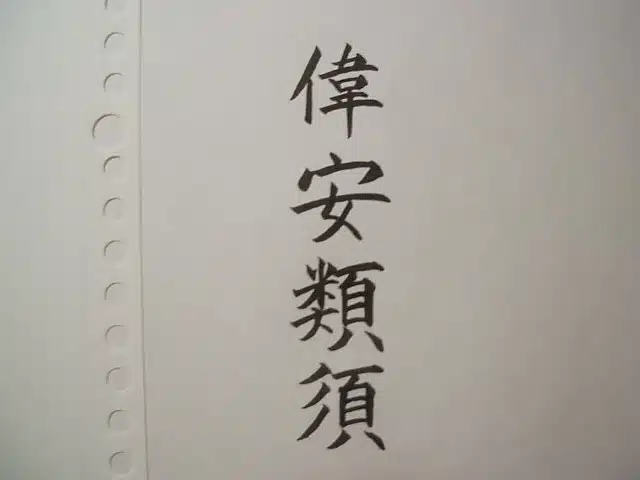 偉安類須